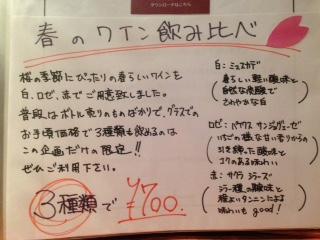 ダウンロードはこちら
春のワイン飲み比べ
桜の季節にぴったりの春らしいワインを
白、ロゼ、赤でご用意致しました。
普段はボトル売りのものばかりで、グラスでの
お手頃価格で3種類も飲めるのは
この企画だけの限定!!
ぜひご利用下さい。
3種類で ¥700.
白:ミュスカデ
春らしい軽い酸味と
自然な炭酸で
さわやかな白
ロゼ: サンジョヴェーゼ
いちごの様な甘い香りからの
引き締った酸味と
コクのある味わい
赤:サクラ シラーズ
シラー種の酸味と
程よいタンニンによる
味わいも good!